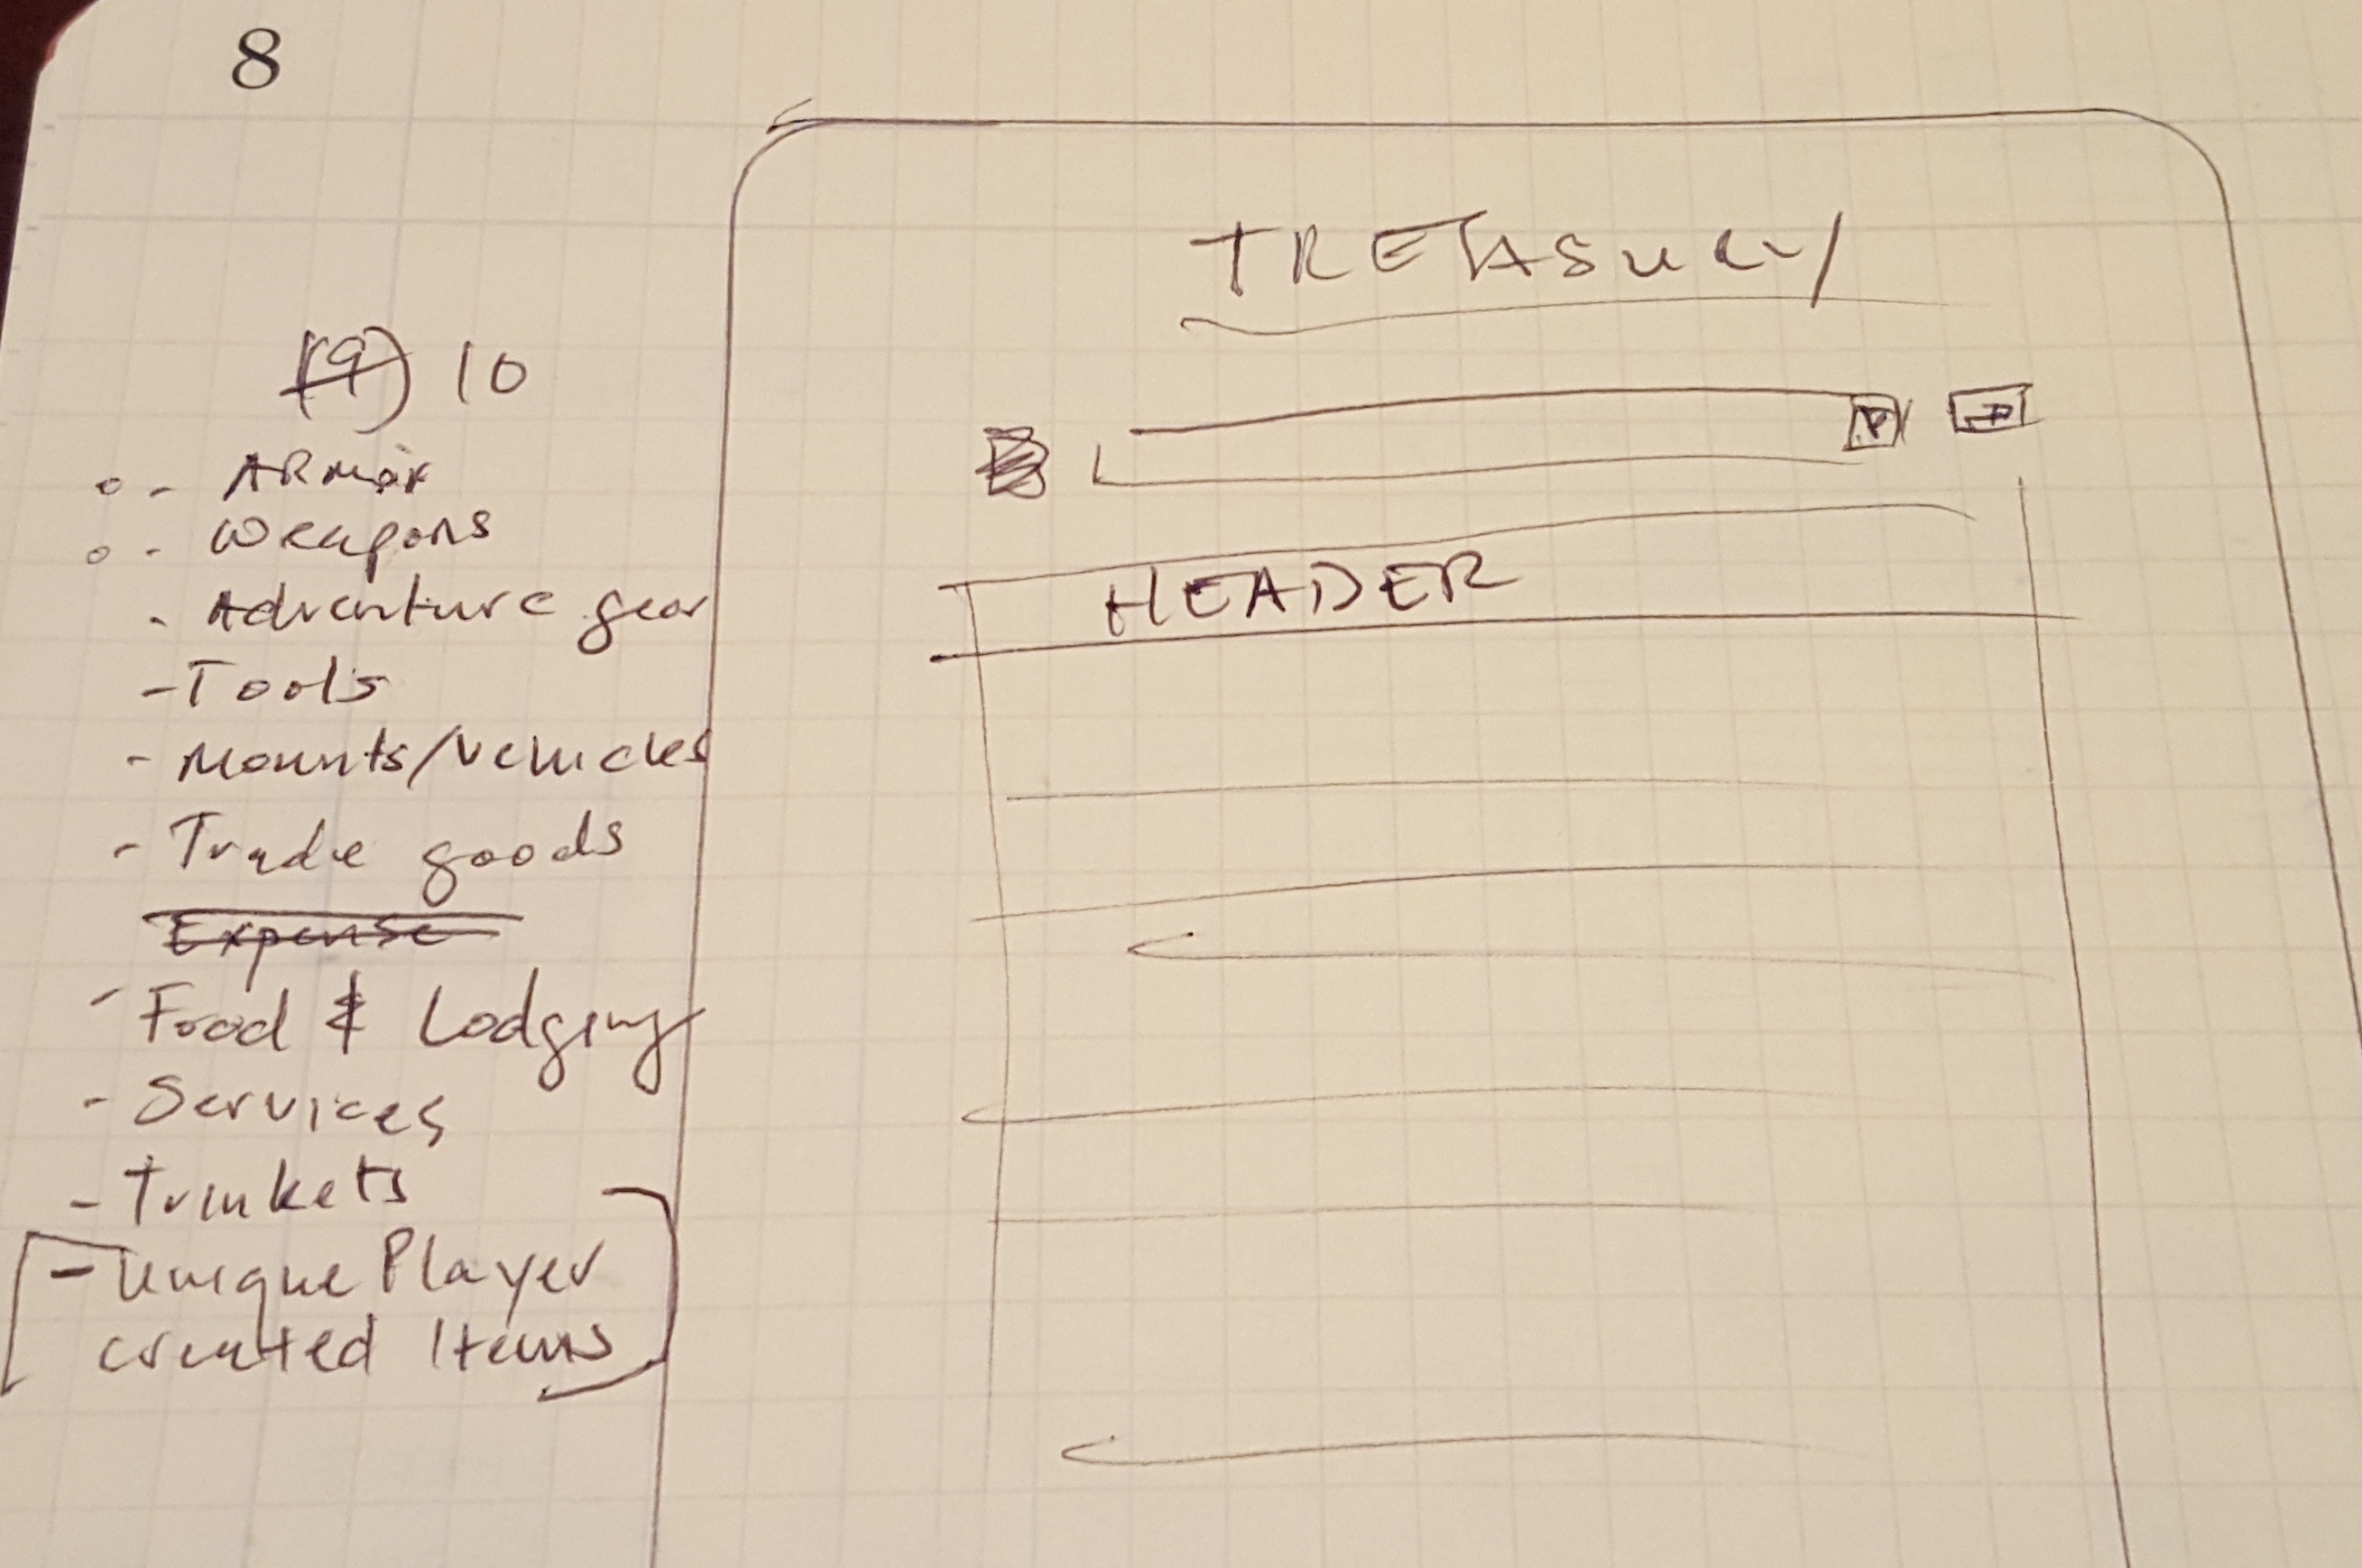 8
(9) 10
- ARmor
- Weapons
- Adventure gear
- Tools
- Mounts/Vehicles
- Trade goods
Expense
- Food & Lodging
- Services
- Trinkets
- Unique Player
created Items
TREASURY
HEADER